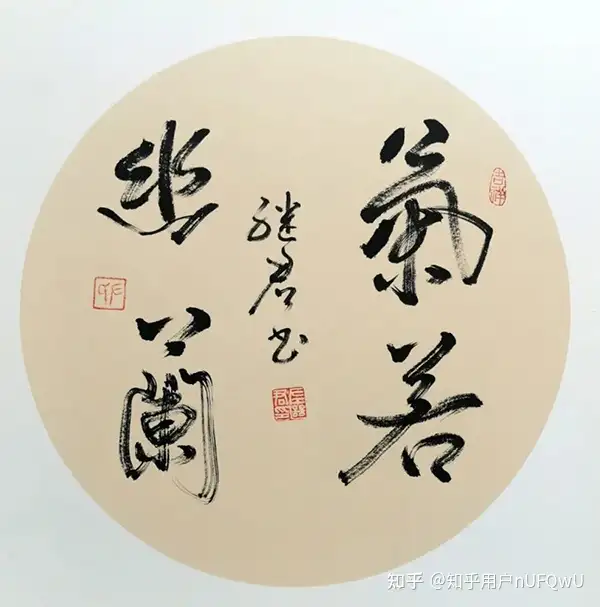 氣若
幽蘭
继君书
知乎 @知乎用户nUFQwU